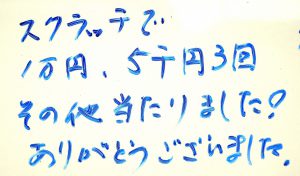 スクラッチで
1万円、5千円3回
その他当たりました!
ありがとうございました。